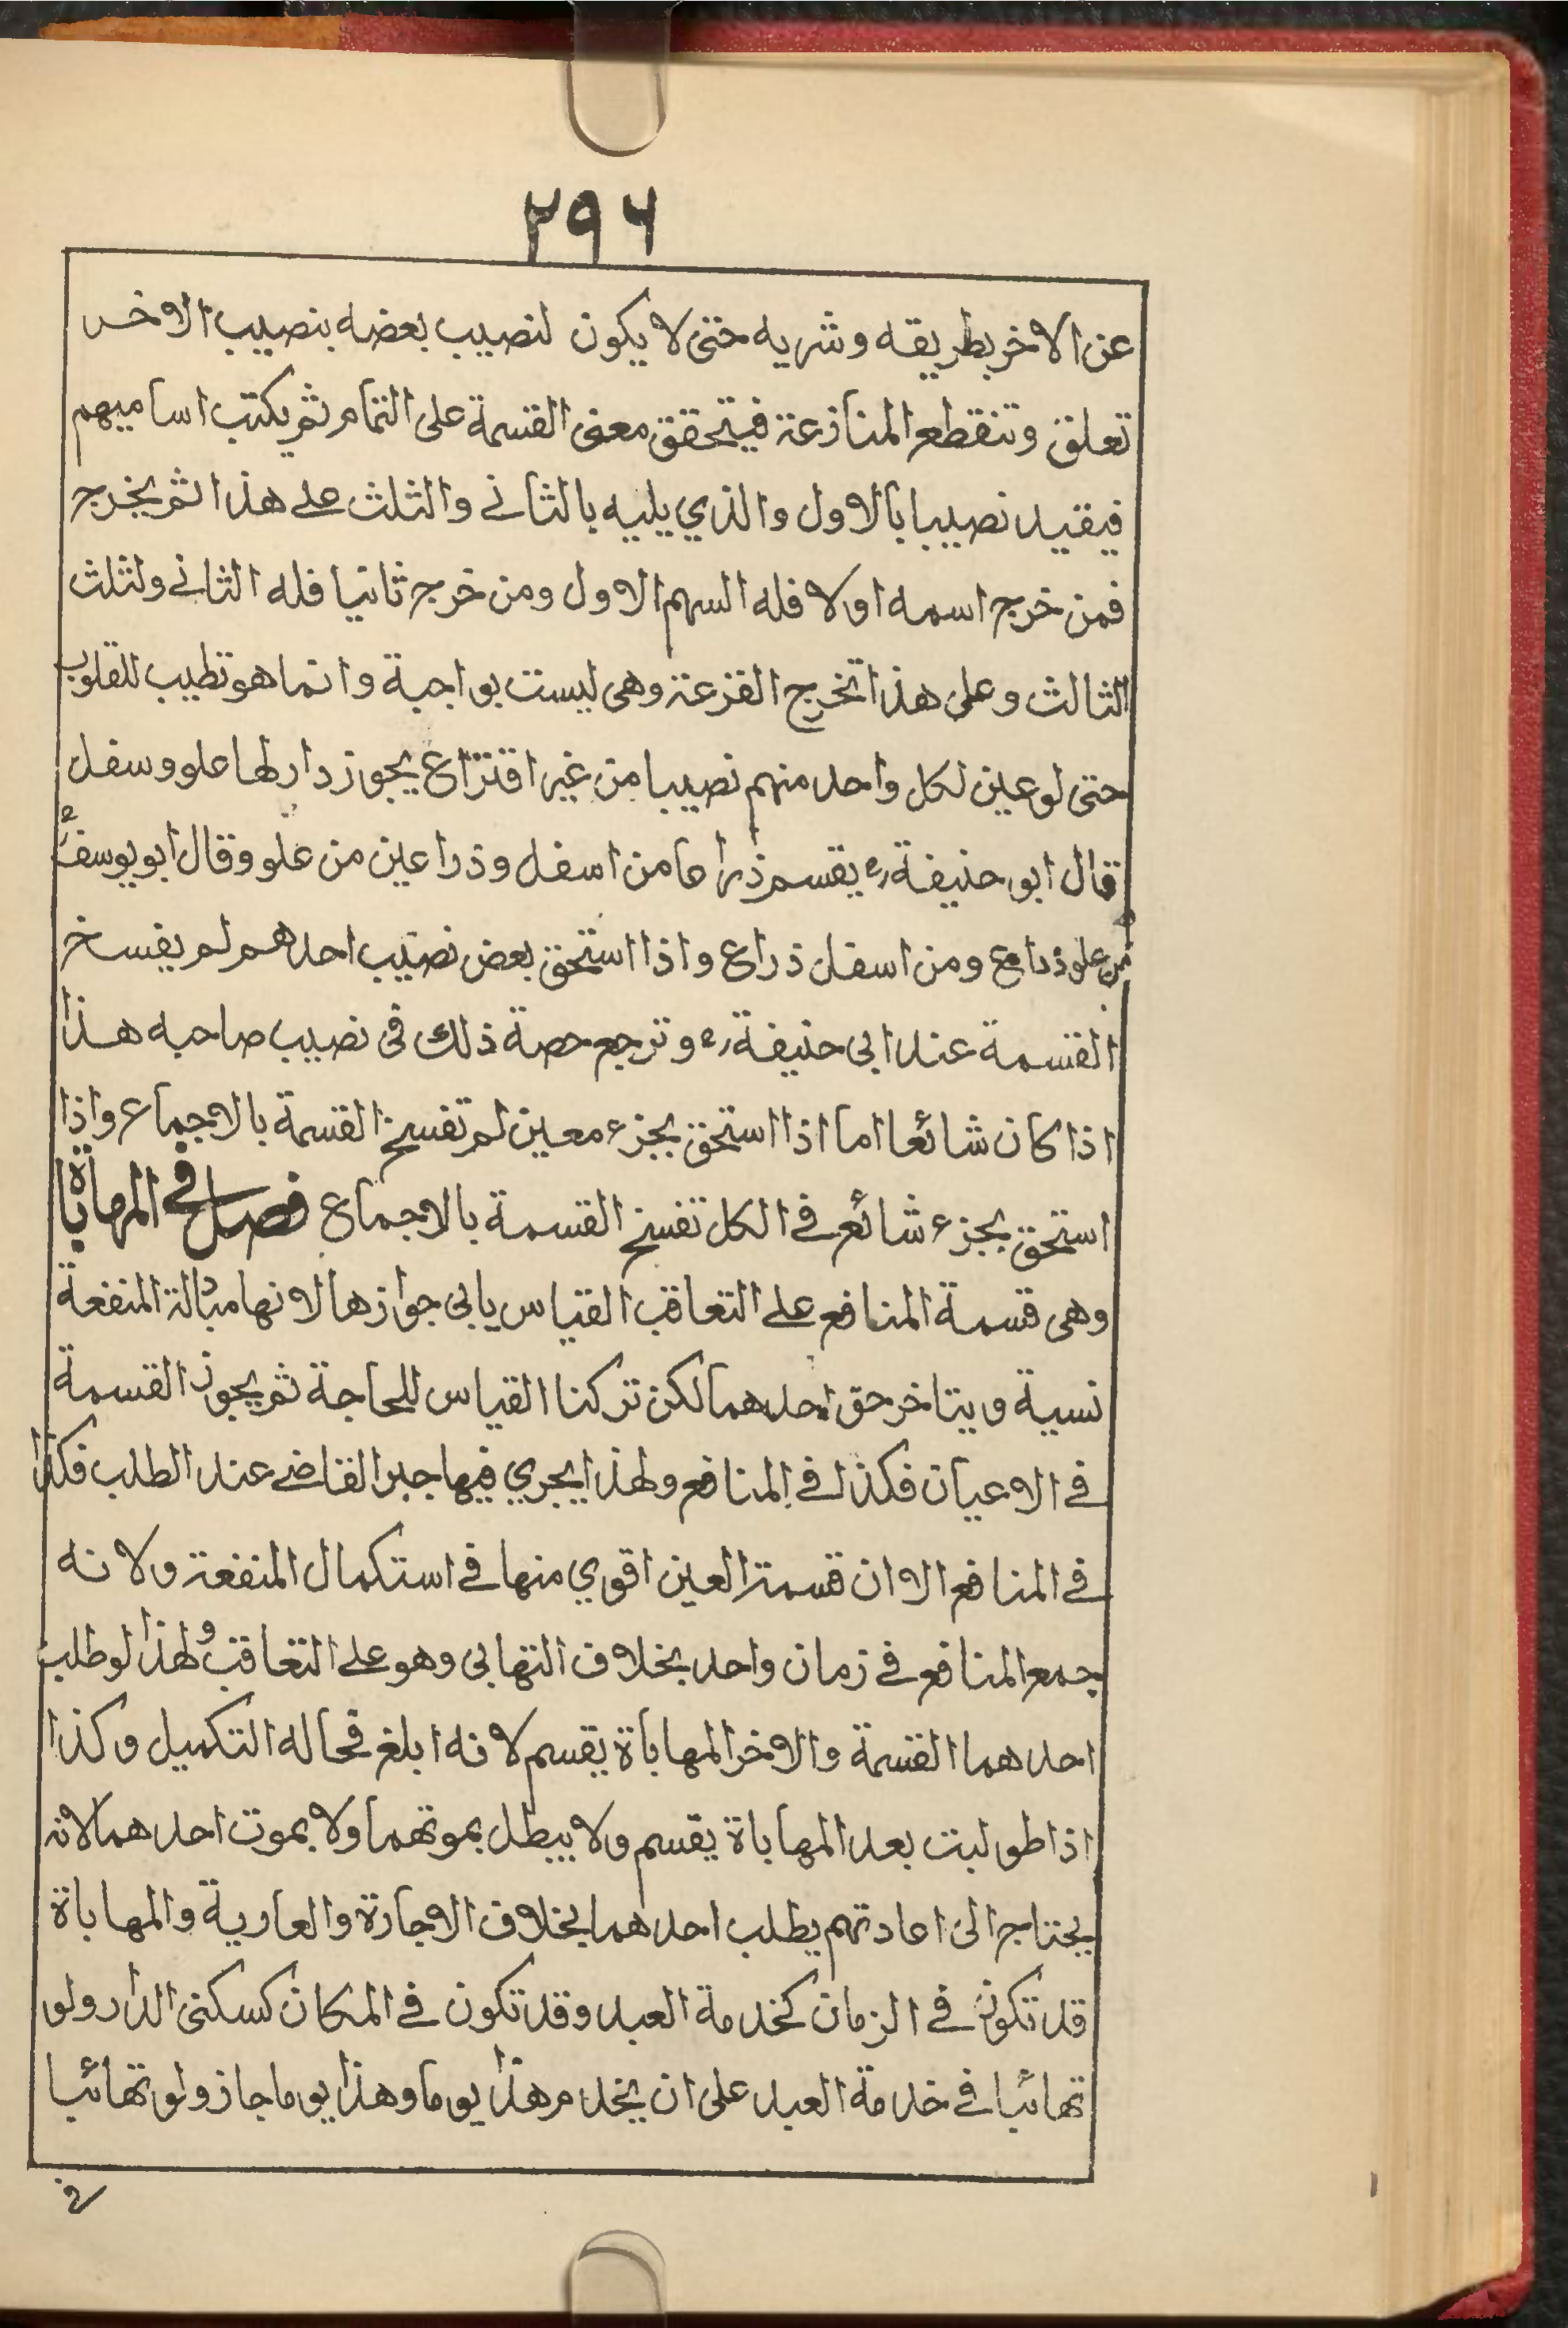 ٢٩٦
عن الاخر بطريقه وشربه حتى لا يكون لنصيب بعضه بنصيب الاخر
تعلق وتنقطع المنازعة فيتحقق معنى القسمة على التمام ثم يكتب اساميهم
فيقيد نصيبا بالاول والذي يليه بالثاني والثلث على هذا ثم يخرج
فمن خرج اسمه اولا فله السهم الاول ومن خرج ثانيا فله الثاني ولثلث
الثالث وعلى هذا تخرج القرعة وهي ليست بواجبة وانما هو تطييب للقلوب
حتى لو عين لكل واحد منهم نصيبا من غير اقتراع يجوز دار لها علو وسفل
قال ابو حنيفة رح يقسم ذراعا من اسفل وذراعين من علو وقال ابو يوسف رح
من علو ذراع ومن اسفل ذراع واذا استحق بعض نصيب احدهم لم يفسخ
القسمة عند ابي حنيفة رح وترجع حصة ذلك في نصيب صاحبه هذا
اذا كان شائعا اما اذا استحق بجزء معين لم تفسخ القسمة بالاجماع واذا
استحق بجزء شائع في الكل تفسخ القسمة بالاجماع فصل في المهاباة
وهي قسمة المنافع على التعاقب القياس يابى جوازها لانها مبادلة المنفعة
نسية ويتاخر حق احدهما لكن تركنا القياس للحاجة ثم يجوز القسمة
في الاعيان فكذا في المنافع ولهذا يجري فيها جبر القاضي عند الطلب فكذا
في المنافع الا ان قسمة العين اقوي منها في استكمال المنفعة ولانه
جمع المنافع في زمان واحد بخلاف التهابي وهو على التعاقب ولهذا لو طلب
احدهما القسمة والاخر المهاباة يقسم لانه ابلغ في حاله التكميل وكذا
اذا طولبت بعد المهاباة يقسم ولا يبطل بموتهما ولا بموت احدهما لانه
يحتاج الى اعادتهم يطلب احدهما بخلاف الاجارة والعارية والمهاباة
قد تكون في الزمان كخدمة العبد وقد تكون في المكان كسكنى الدار ولو
تهائبا في خدمة العبد على ان يخدم هذا يوما وهذا يوما جاز ولو تهائبا
في